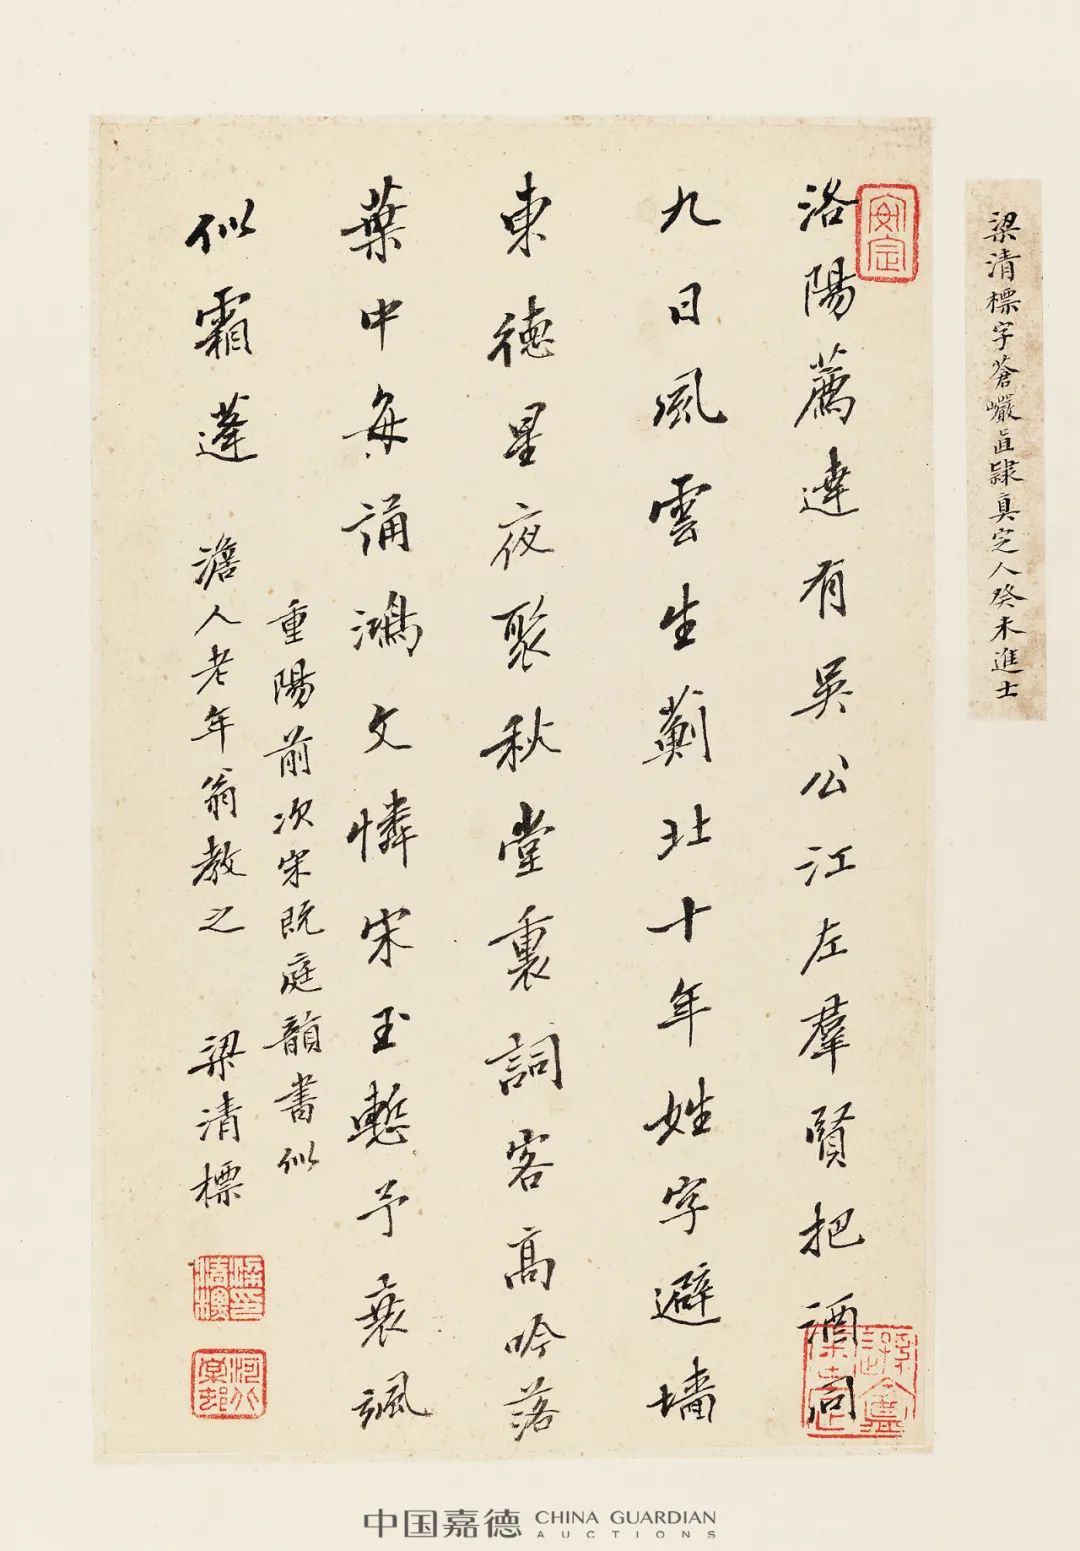 梁清標字蒼巖直隸真定人癸未進士
洛陽薦達有吳公江左羣賢把酒同
九日風雲生薊北十年姓字避墻
東德星夜聚秋堂裏詞客高吟落
葉中每誦鴻文憐宋玉慙予衰颯
似霜蓬
重陽前次宋既庭韻書似
澹人老年翁教之 梁清標
安定
中国嘉德 CHINA GUARDIAN
AUCTIONS